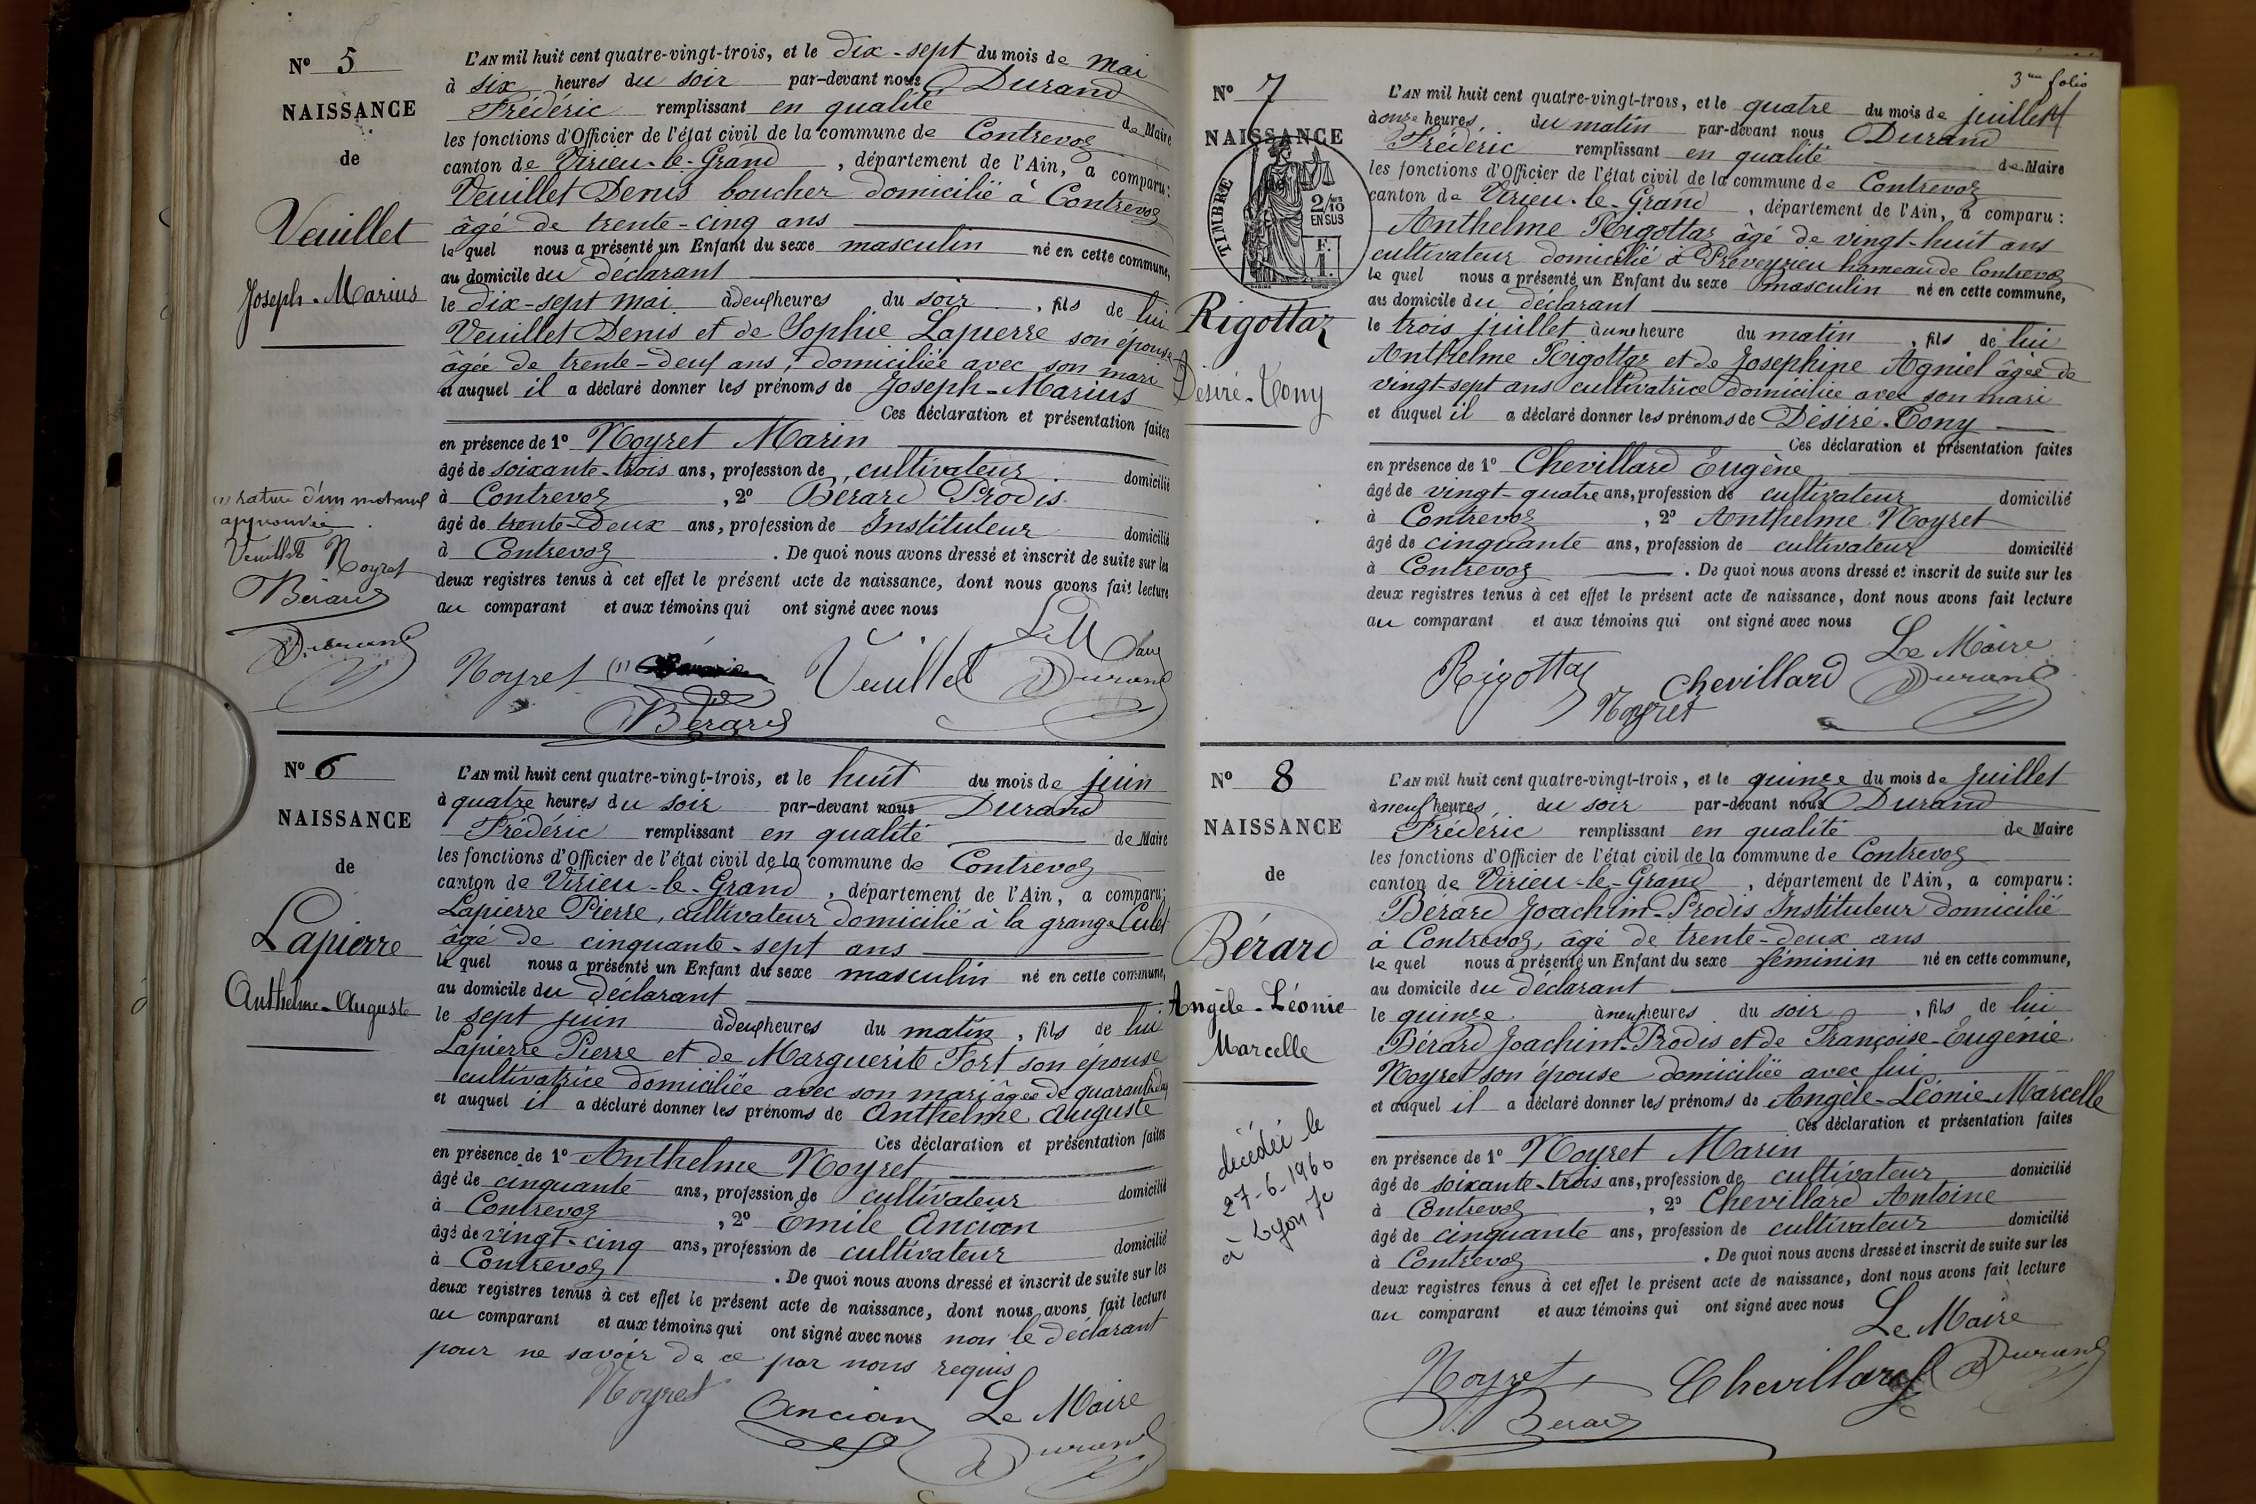 N° 5
NAISSANCE
de
Veuillet
Joseph-Marius
L'AN mil huit cent quatre-vingt-trois, et le dix-sept du mois de mai
à six heures du soir par-devant nous Durand
Frédéric remplissant en qualité de Maire
les fonctions d'Officier de l'état civil de la commune de Contrevoz
canton de Virieu-le-Grand, département de l'Ain, a comparu:
Veuillet Denis boucher domicilié à Contrevoz
âgé de trente-cinq ans
lequel nous a présenté un Enfant du sexe masculin né en cette commune,
au domicile du déclarant
le dix-sept mai à deux heures du soir, fils de lui
Veuillet Denis et de Sophie Lapierre son épouse
âgée de trente-deux ans, domiciliée avec son mari
et auquel il a déclaré donner les prénoms de Joseph-Marius
Ces déclaration et présentation faites
en présence de 1° Noyret Marin
âgé de soixante-trois ans, profession de cultivateur domicilié
à Contrevoz, 2° Bérard Prodis
âgé de trente-deux ans, profession de Instituteur domicilié
à Contrevoz. De quoi nous avons dressé et inscrit de suite sur les
deux registres tenus à cet effet le présent acte de naissance, dont nous avons fait lecture
au comparant et aux témoins qui ont signé avec nous
(1) rature d'un mot nul
approuvée.
Veuillet Noyret
Bérard
Durand
Le Maire
Noyret (1) Veuillet Durand
Bérard
N° 6
NAISSANCE
de
Lapierre
Anthelme-Auguste
L'AN mil huit cent quatre-vingt-trois, et le huit du mois de juin
à quatre heures du soir par-devant nous Durand
Frédéric remplissant en qualité de Maire
les fonctions d'Officier de l'état civil de la commune de Contrevoz
canton de Virieu-le-Grand, département de l'Ain, a comparu:
Lapierre Pierre, cultivateur domicilié à la grange Culet
âgé de cinquante-sept ans
lequel nous a présenté un Enfant du sexe masculin né en cette commune,
au domicile du déclarant
le sept juin à deux heures du matin, fils de lui
Lapierre Pierre et de Marguerite Fort son épouse
cultivatrice domiciliée avec son mari âgée de quarante
et auquel il a déclaré donner les prénoms de Anthelme Auguste
Ces déclaration et présentation faites
en présence de 1° Anthelme Noyret
âgé de cinquante ans, profession de cultivateur domicilié
à Contrevoz, 2° Émile Ancian
âgé de vingt-cinq ans, profession de cultivateur domicilié
à Contrevoz. De quoi nous avons dressé et inscrit de suite sur les
deux registres tenus à cet effet le présent acte de naissance, dont nous avons fait lecture
au comparant et aux témoins qui ont signé avec nous non le déclarant
pour ne savoir de ce par nous requis
Noyret Ancian Le Maire
Durand
3me folio
N° 7
NAISSANCE
TIMBRE
2/10
EN SUS
F.
1.
Rigottaz
Désiré-Tony
L'AN mil huit cent quatre-vingt-trois, et le quatre du mois de juillet
à onze heures du matin par-devant nous Durand
Frédéric remplissant en qualité de Maire
les fonctions d'Officier de l'état civil de la commune de Contrevoz
canton de Virieu-le-Grand, département de l'Ain, a comparu:
Anthelme Rigottaz âgé de vingt-huit ans
cultivateur domicilié à Préveyzieu hameau de Contrevoz
lequel nous a présenté un Enfant du sexe masculin né en cette commune,
au domicile du déclarant
le trois juillet à une heure du matin, fils de lui
Anthelme Rigottaz et de Josephine Agniel âgée de
vingt-sept ans cultivatrice domiciliée avec son mari
et auquel il a déclaré donner les prénoms de Désiré-Tony
Ces déclaration et présentation faites
en présence de 1° Chevillard Eugène
âgé de vingt-quatre ans, profession de cultivateur domicilié
à Contrevoz, 2° Anthelme Noyret
âgé de cinquante ans, profession de cultivateur domicilié
à Contrevoz. De quoi nous avons dressé et inscrit de suite sur les
deux registres tenus à cet effet le présent acte de naissance, dont nous avons fait lecture
au comparant et aux témoins qui ont signé avec nous
Le Maire
Rigottaz Chevillard Durand
Noyret
N° 8
NAISSANCE
de
Bérard
Angèle-Léonie
Marcelle
décédée le
27-6-1960
à Lyon 7e
L'AN mil huit cent quatre-vingt-trois, et le quinze du mois de Juillet
à neuf heures du soir par-devant nous Durand
Frédéric remplissant en qualité de Maire
les fonctions d'Officier de l'état civil de la commune de Contrevoz
canton de Virieu-le-Grand, département de l'Ain, a comparu:
Bérard Joachim-Prodis Instituteur domicilié
à Contrevoz, âgé de trente-deux ans
lequel nous a présenté un Enfant du sexe féminin né en cette commune,
au domicile du déclarant
le quinze à neuf heures du soir, fils de lui
Bérard Joachim-Prodis et de Françoise-Eugénie
Noyret son épouse domiciliée avec lui
et auquel il a déclaré donner les prénoms de Angèle-Léonie-Marcelle
Ces déclaration et présentation faites
en présence de 1° Noyret Marin
âgé de soixante-trois ans, profession de cultivateur domicilié
à Contrevoz, 2° Chevillard Antoine
âgé de cinquante ans, profession de cultivateur domicilié
à Contrevoz. De quoi nous avons dressé et inscrit de suite sur les
deux registres tenus à cet effet le présent acte de naissance, dont nous avons fait lecture
au comparant et aux témoins qui ont signé avec nous
Le Maire
Noyret Chevillard Durand
Bérard